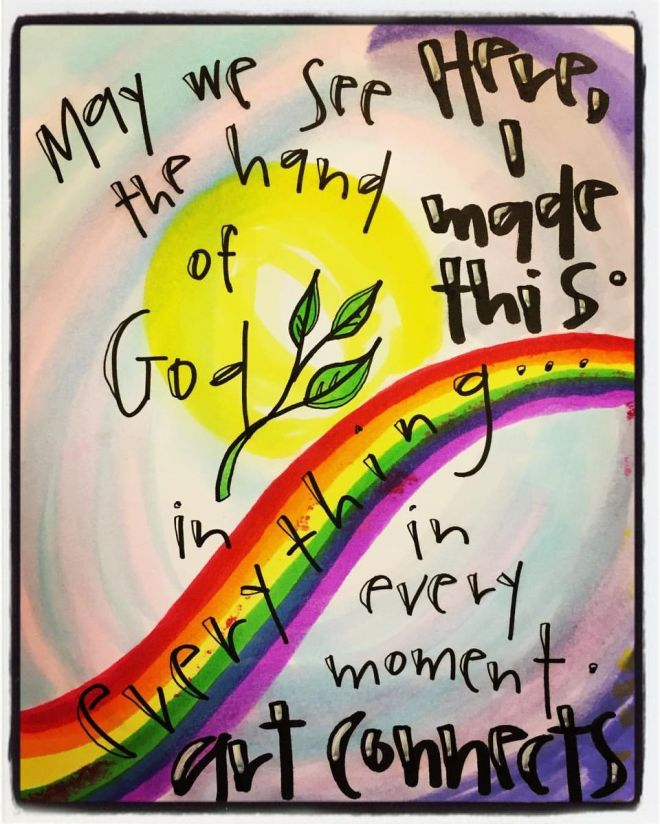 May we see
the hand
of
God
in
everything...
in
every
moment.
Here,
I
made
this.
art connects